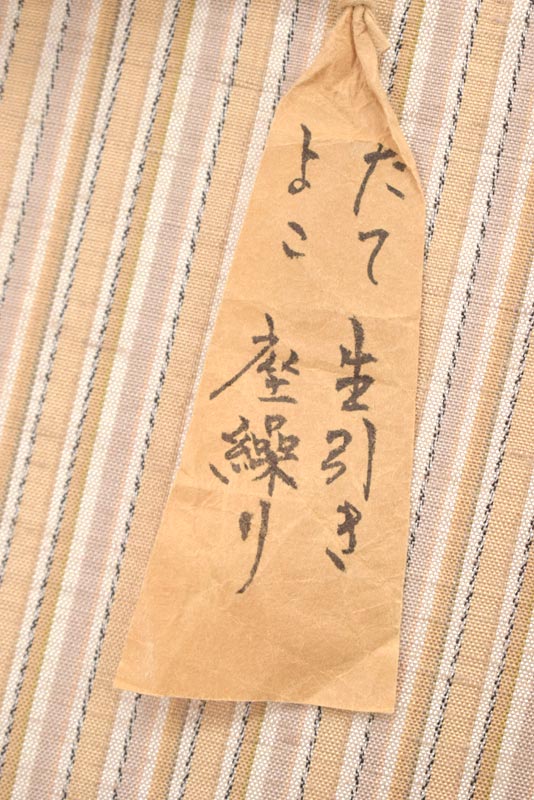 たて 生引き
よこ 座繰り